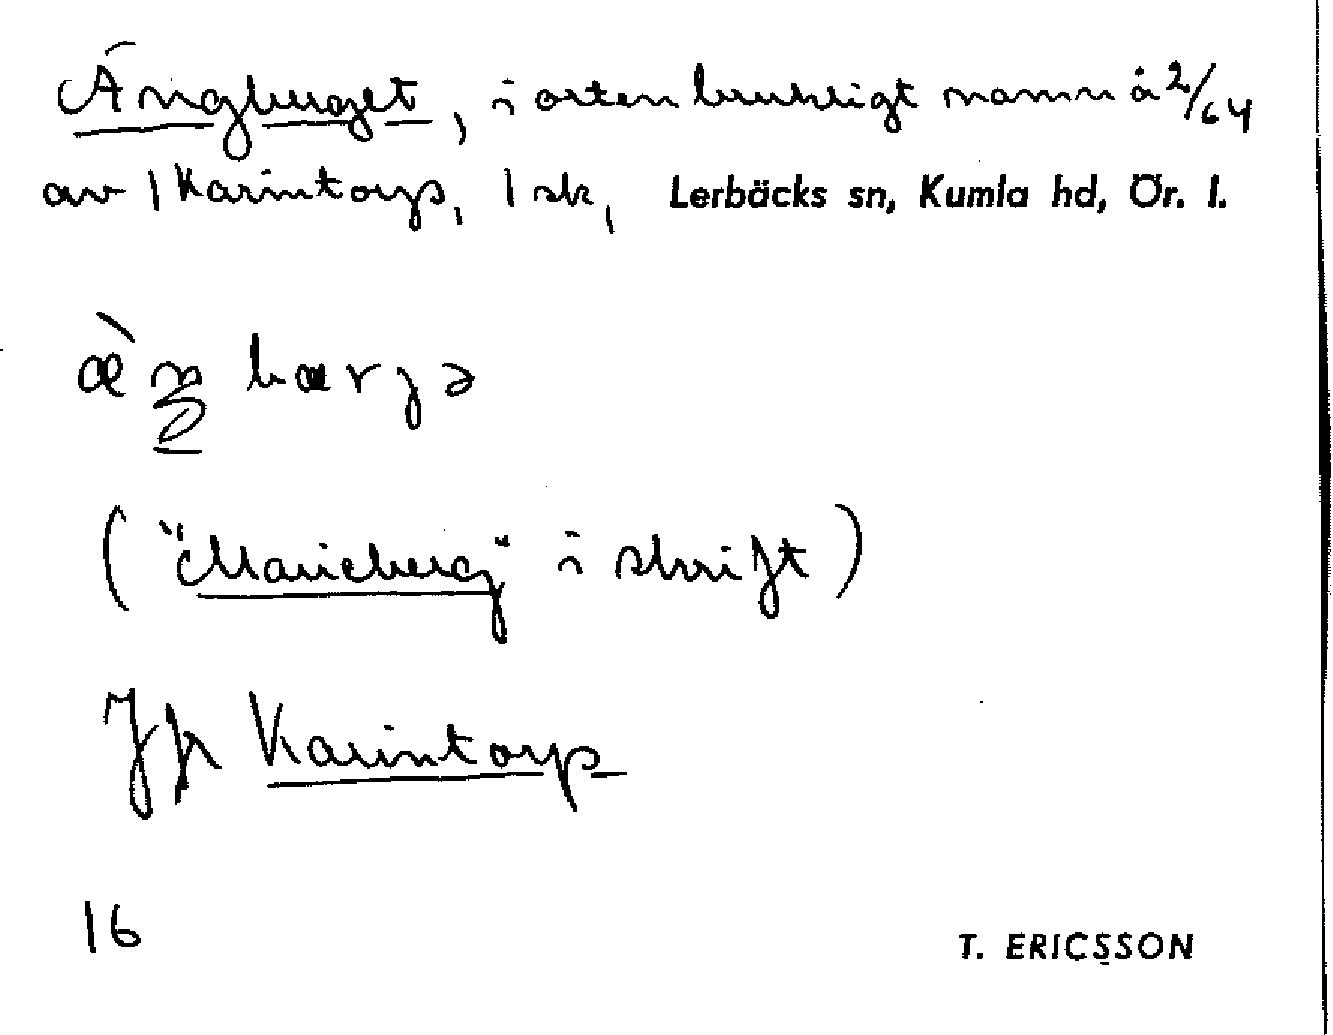 Ängberget, i orten brukligt namn å 2/64
av 1 Karintorp, 1 sk, Lerbäcks sn, Kumla hd, Ör. l.
("Marieberg" i skrift)
Jfr Karintorp
16
T. ERICSSON